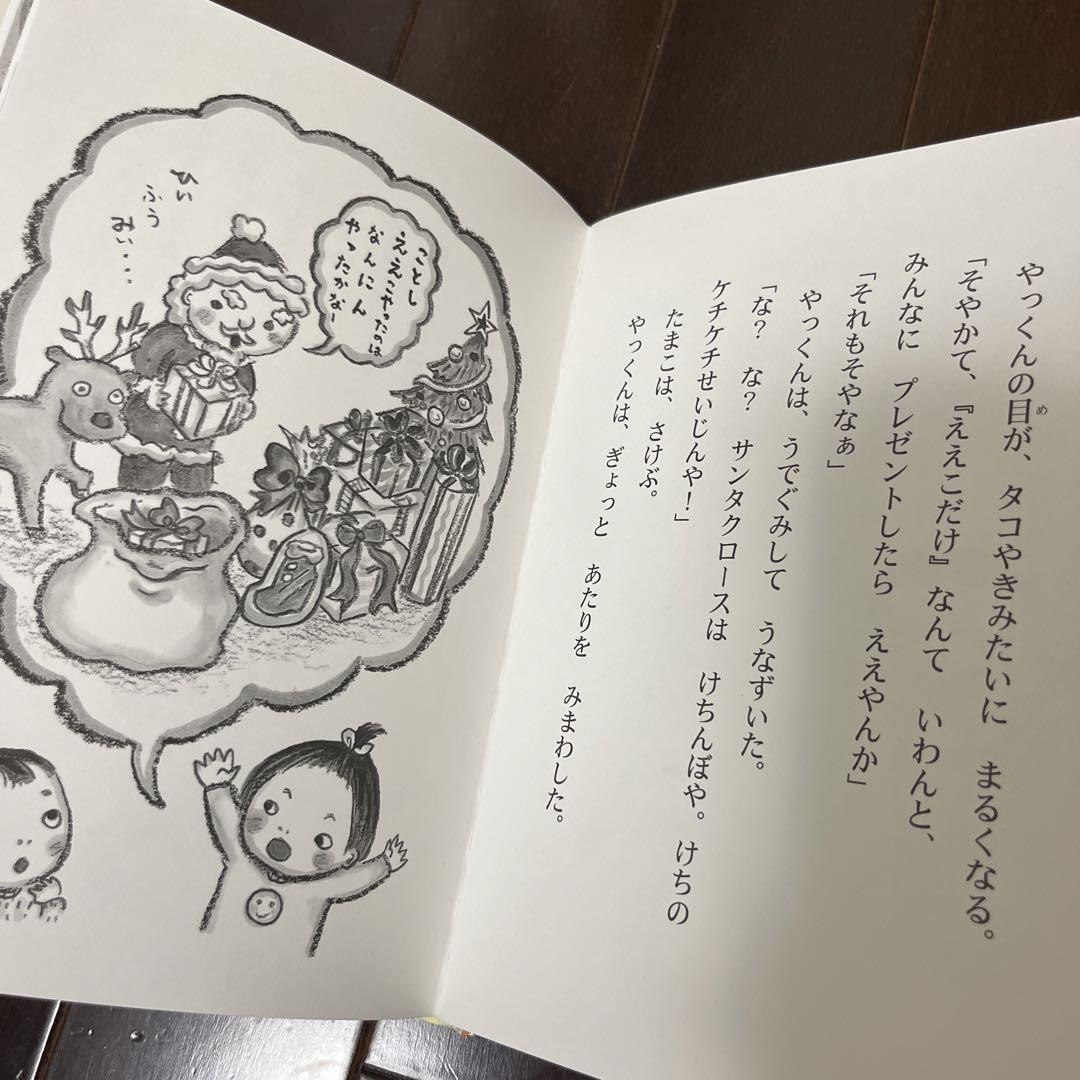 やっくんの目が、　タコやきみたいに　まるくなる。
「そやかて、『ええこだけ』なんて　いわんと、
みんなに　プレゼントしたら　ええやんか」
「それもそやなぁ」
やっくんは、うでぐみして　うなずいた。
「な？　な？　サンタクロースは　けちんぼや。けちの
ケチケチせいじんや！」
たまこは、さけぶ。
やっくんは、ぎょっと　あたりを　みまわした。
ことし
ええこやったのは
なんにん
やったかなー
ひい
ふう
みい・・・